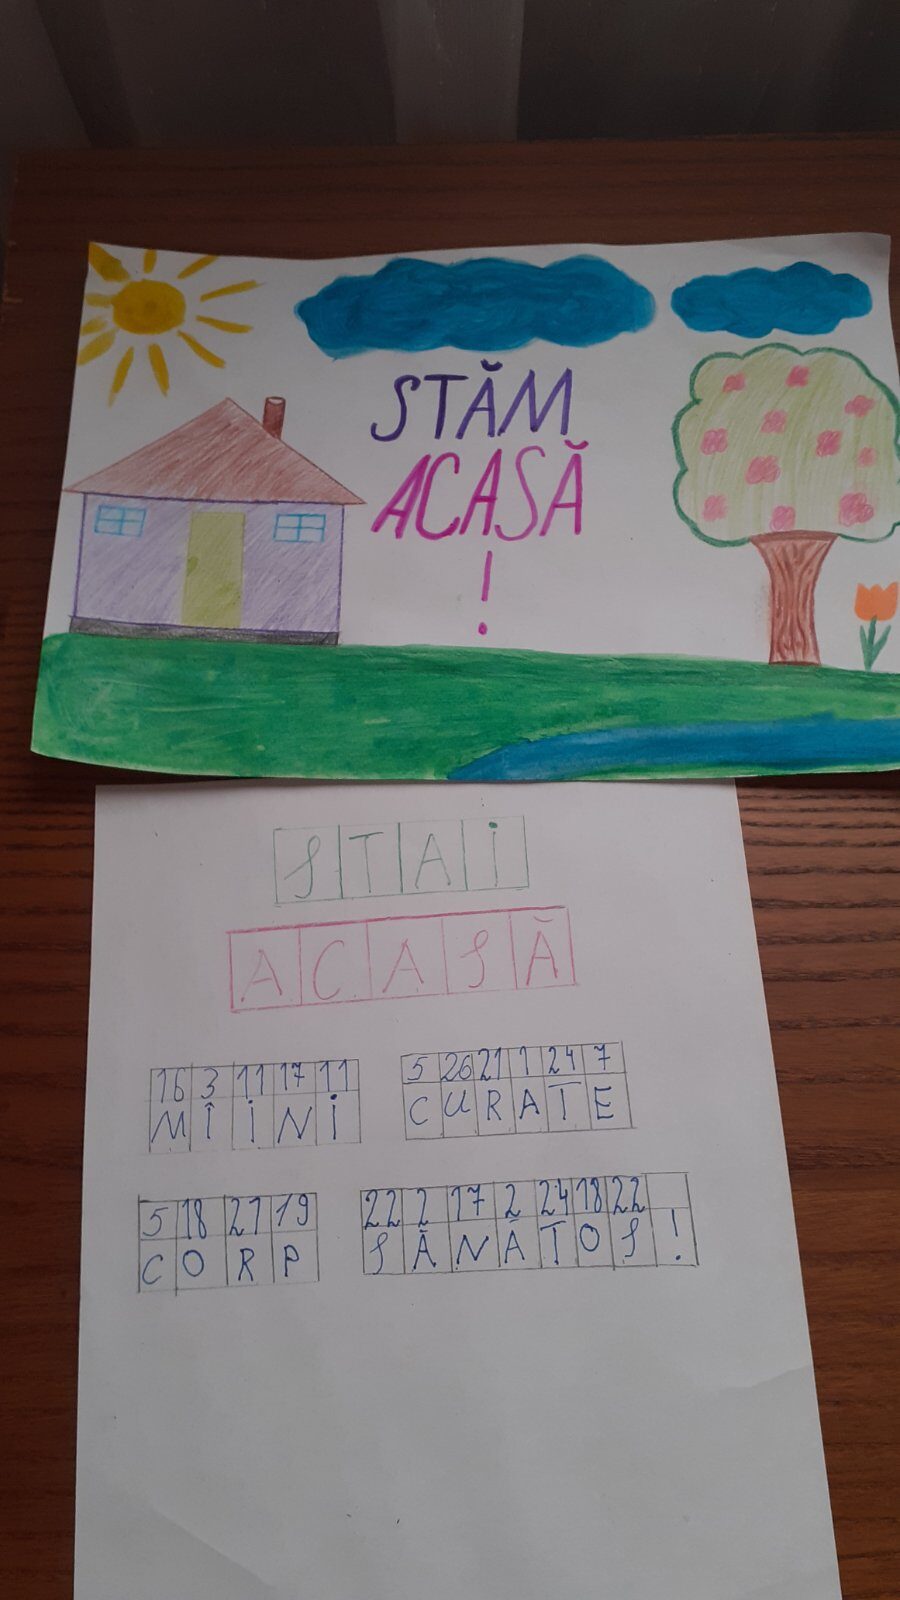 STĂM
ACASĂ
!
STAI
ACASĂ
16 3 11 17 11
MÎINI
5 26 21 1 24 7
CURATE
5 18 21 19
CORP
22 2 17 2 24 18 22
SĂNĂTOS!